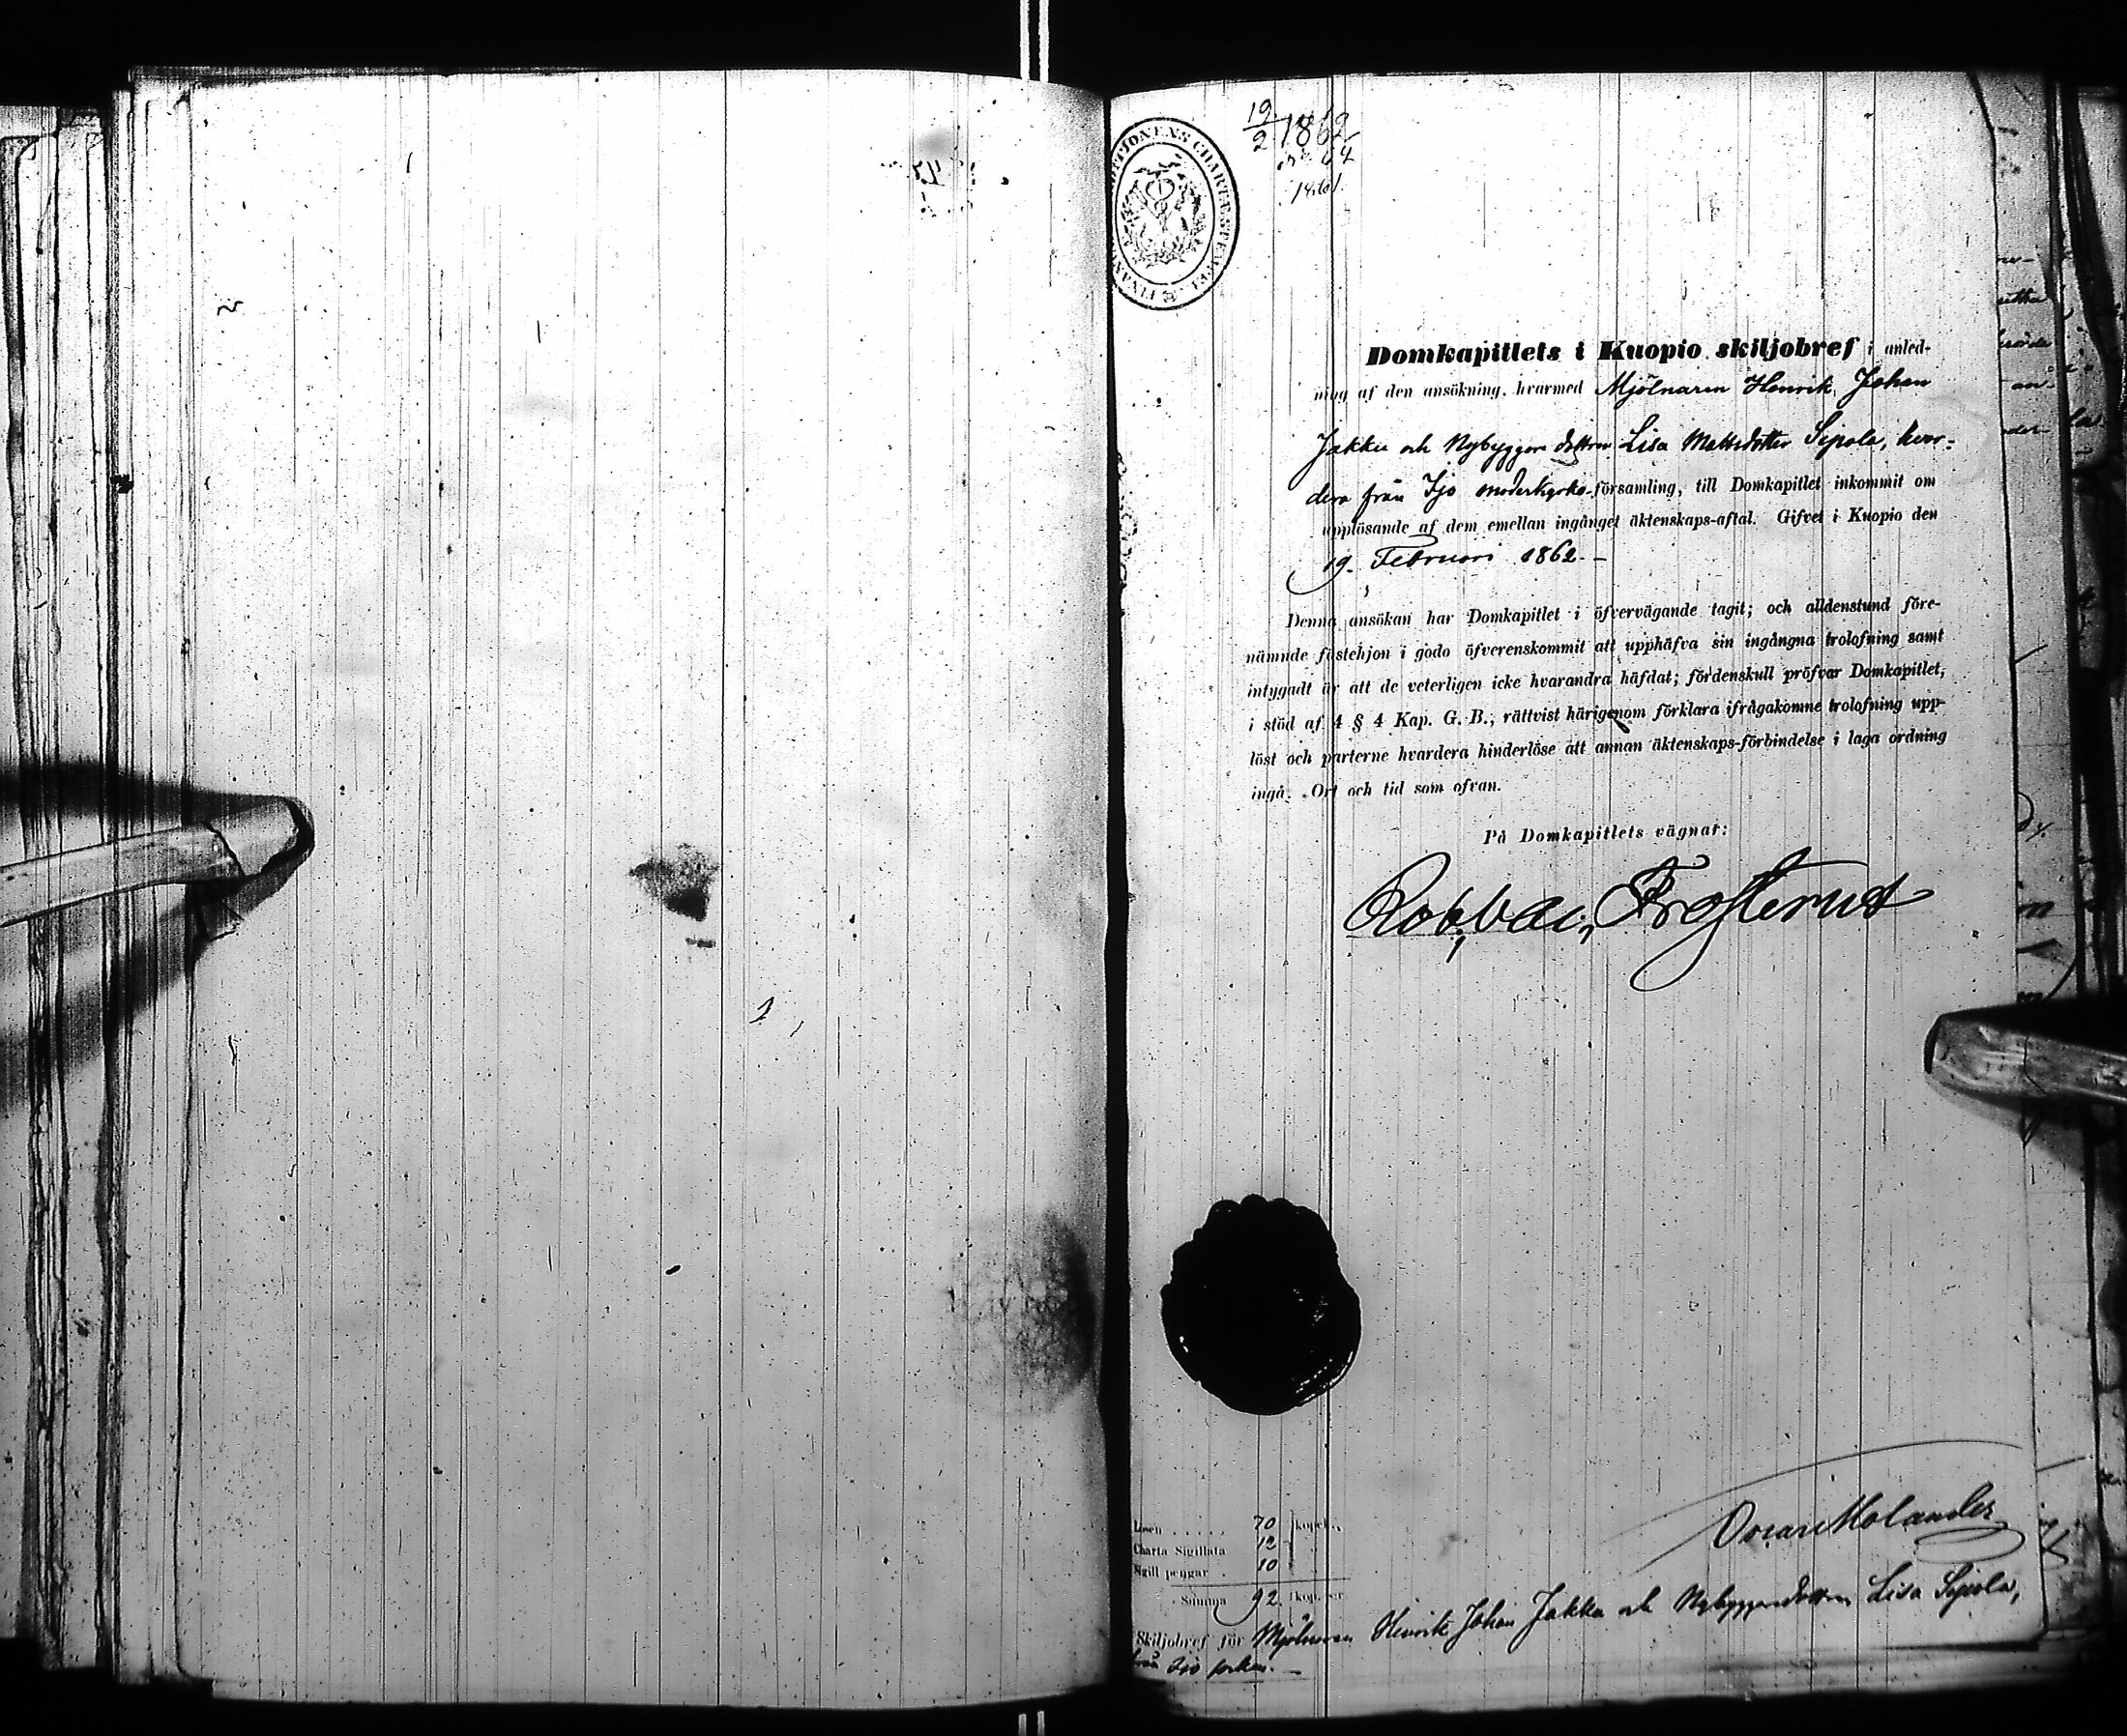 19/2 1862
Domkapitlets i Kuopio skiljobref i anled-
ning af den ansökning, hvarmed Mjölnaren Henrik Johan
Jakku och Nybyggare dottren Lisa Mattsdotter Sipola, hvar-
dera från Ijo moderkyrko-församling, till Domkapitlet inkommit om
upplösande af dem emellan ingånget äktenskaps-aftal. Gifvet i Kuopio den
19. Februari 1862.—
Denna ansökan har Domkapitlet i öfvervägande tagit; och alldenstund före-
nämnde fästehjon i godo öfverenskommit att upphäfva sin ingångna trolofning samt
intygadt är att de veterligen icke hvarandra häfdat; fördenskull pröfvar Domkapitlet,
i stöd af 4 § 4 Kap. G. B., rättvist härigenom förklara ifrågakomne trolofning upp-
löst och parterne hvardera hinderlöse att annan äktenskaps-förbindelse i laga ordning
ingå. Ort och tid som ofvan.
På Domkapitlets vägnar:
Frosterus
Oscar Molander
Lösen . . . . . 70 kopek.
Charta Sigillata 12
Sigill pengar . 10
Summa 92. kop.
Skiljobref för Mjölnaren Henrik Johan Jakku och Nybyggaredottren Lisa Sipola,
från Ijo socken.—